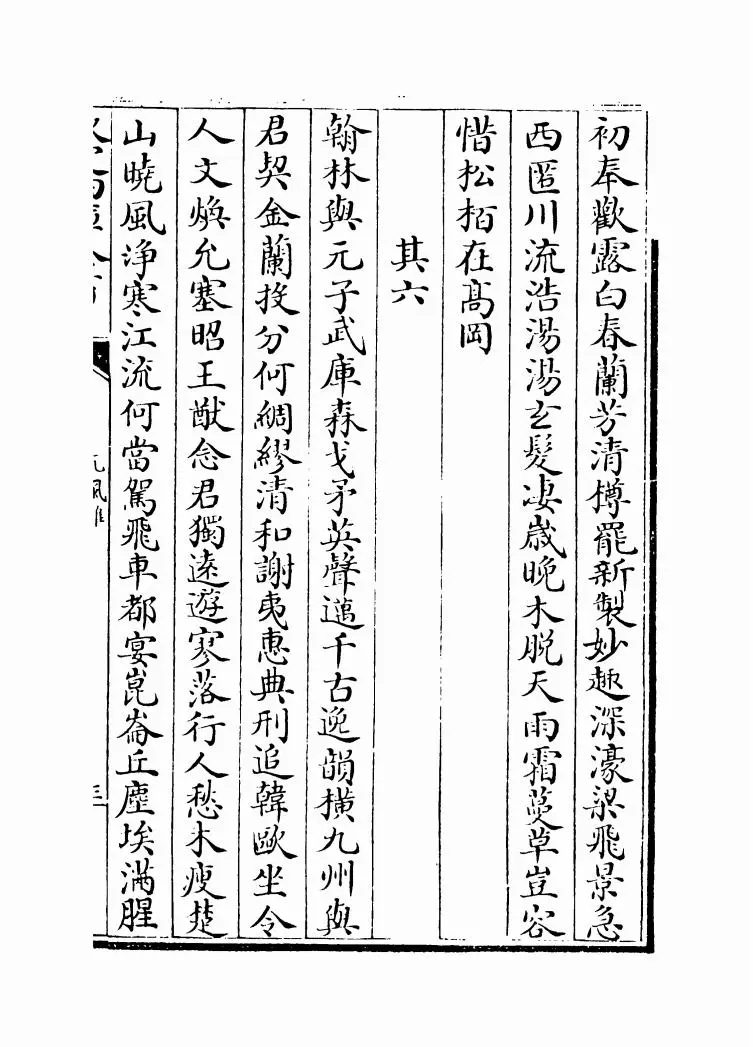 初奉歡露白春蘭芳清樽罷新製妙趣深濠梁飛景急
西匿川流浩湯湯玄髮凄歲晚木脫天雨霜蔓草豈容
惜松栢在髙岡
其六
翰林與元子武庫森戈矛英聲邁千古逸韻橫九州與
君契金蘭投分何綢繆清和謝夷惠典刑追韓歐坐令
人文煥允塞昭王猷念君獨逺遊寥落行人愁木瘦楚
山曉風浄寒江流何當駕飛車都宴崑崙丘塵埃滿腥
元風雅
三